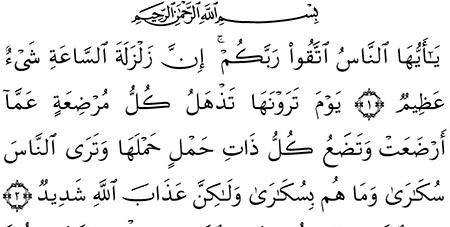 بِسْمِ ٱللَّهِ ٱلرَّحْمَٰنِ ٱلرَّحِيمِ
يَٰٓأَيُّهَا ٱلنَّاسُ ٱتَّقُوا۟ رَبَّكُمْ ۚ إِنَّ زَلْزَلَةَ ٱلسَّاعَةِ شَىْءٌ
عَظِيمٌ ﴿١﴾ يَوْمَ تَرَوْنَهَا تَذْهَلُ كُلُّ مُرْضِعَةٍ عَمَّآ
أَرْضَعَتْ وَتَضَعُ كُلُّ ذَاتِ حَمْلٍ حَمْلَهَا وَتَرَى ٱلنَّاسَ
سُكَٰرَىٰ وَمَا هُم بِسُكَٰرَىٰ وَلَٰكِنَّ عَذَابَ ٱللَّهِ شَدِيدٌ ﴿٢﴾